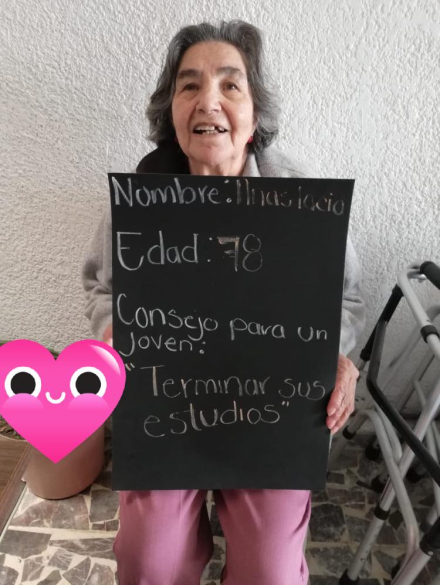 Nombre: Anastacia
Edad: 78
Consejo para un
joven:
"Terminar sus
estudios"